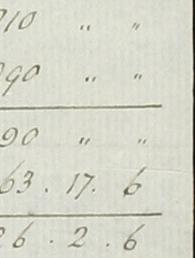 010 " "
090 " "
90 " "
63 . 17 . 6
26 . 2 . 6